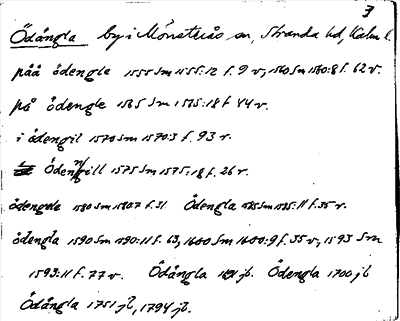 3
Ödångla by i Mönsterås sn, Stranda hd, Kalm l.
påå ödengle 1555 Sm 1555:12 f. 9 v, 1560 Sm 1560:8 f. 62 v.
på ödengle 1565 Sm 1565:18 f. 44 v.
i ödengil 1570 Sm 1570:3 f. 93 r.
Ödengill 1575 Sm 1575:18 f. 26 r.
ödengele 1580 Sm 1580:7 f. 31 Ödengla 1585 Sm 1585:11 f. 35 r.
ödengla 1590 Sm 1590:11 f. 63, 1600 Sm 1600:9 f. 35 v, 1593 Sm
1593:11 f. 77 v. Ödångla jb. Ödengla 1700 jb
Ödångla 1751 jb, 1794 jb.